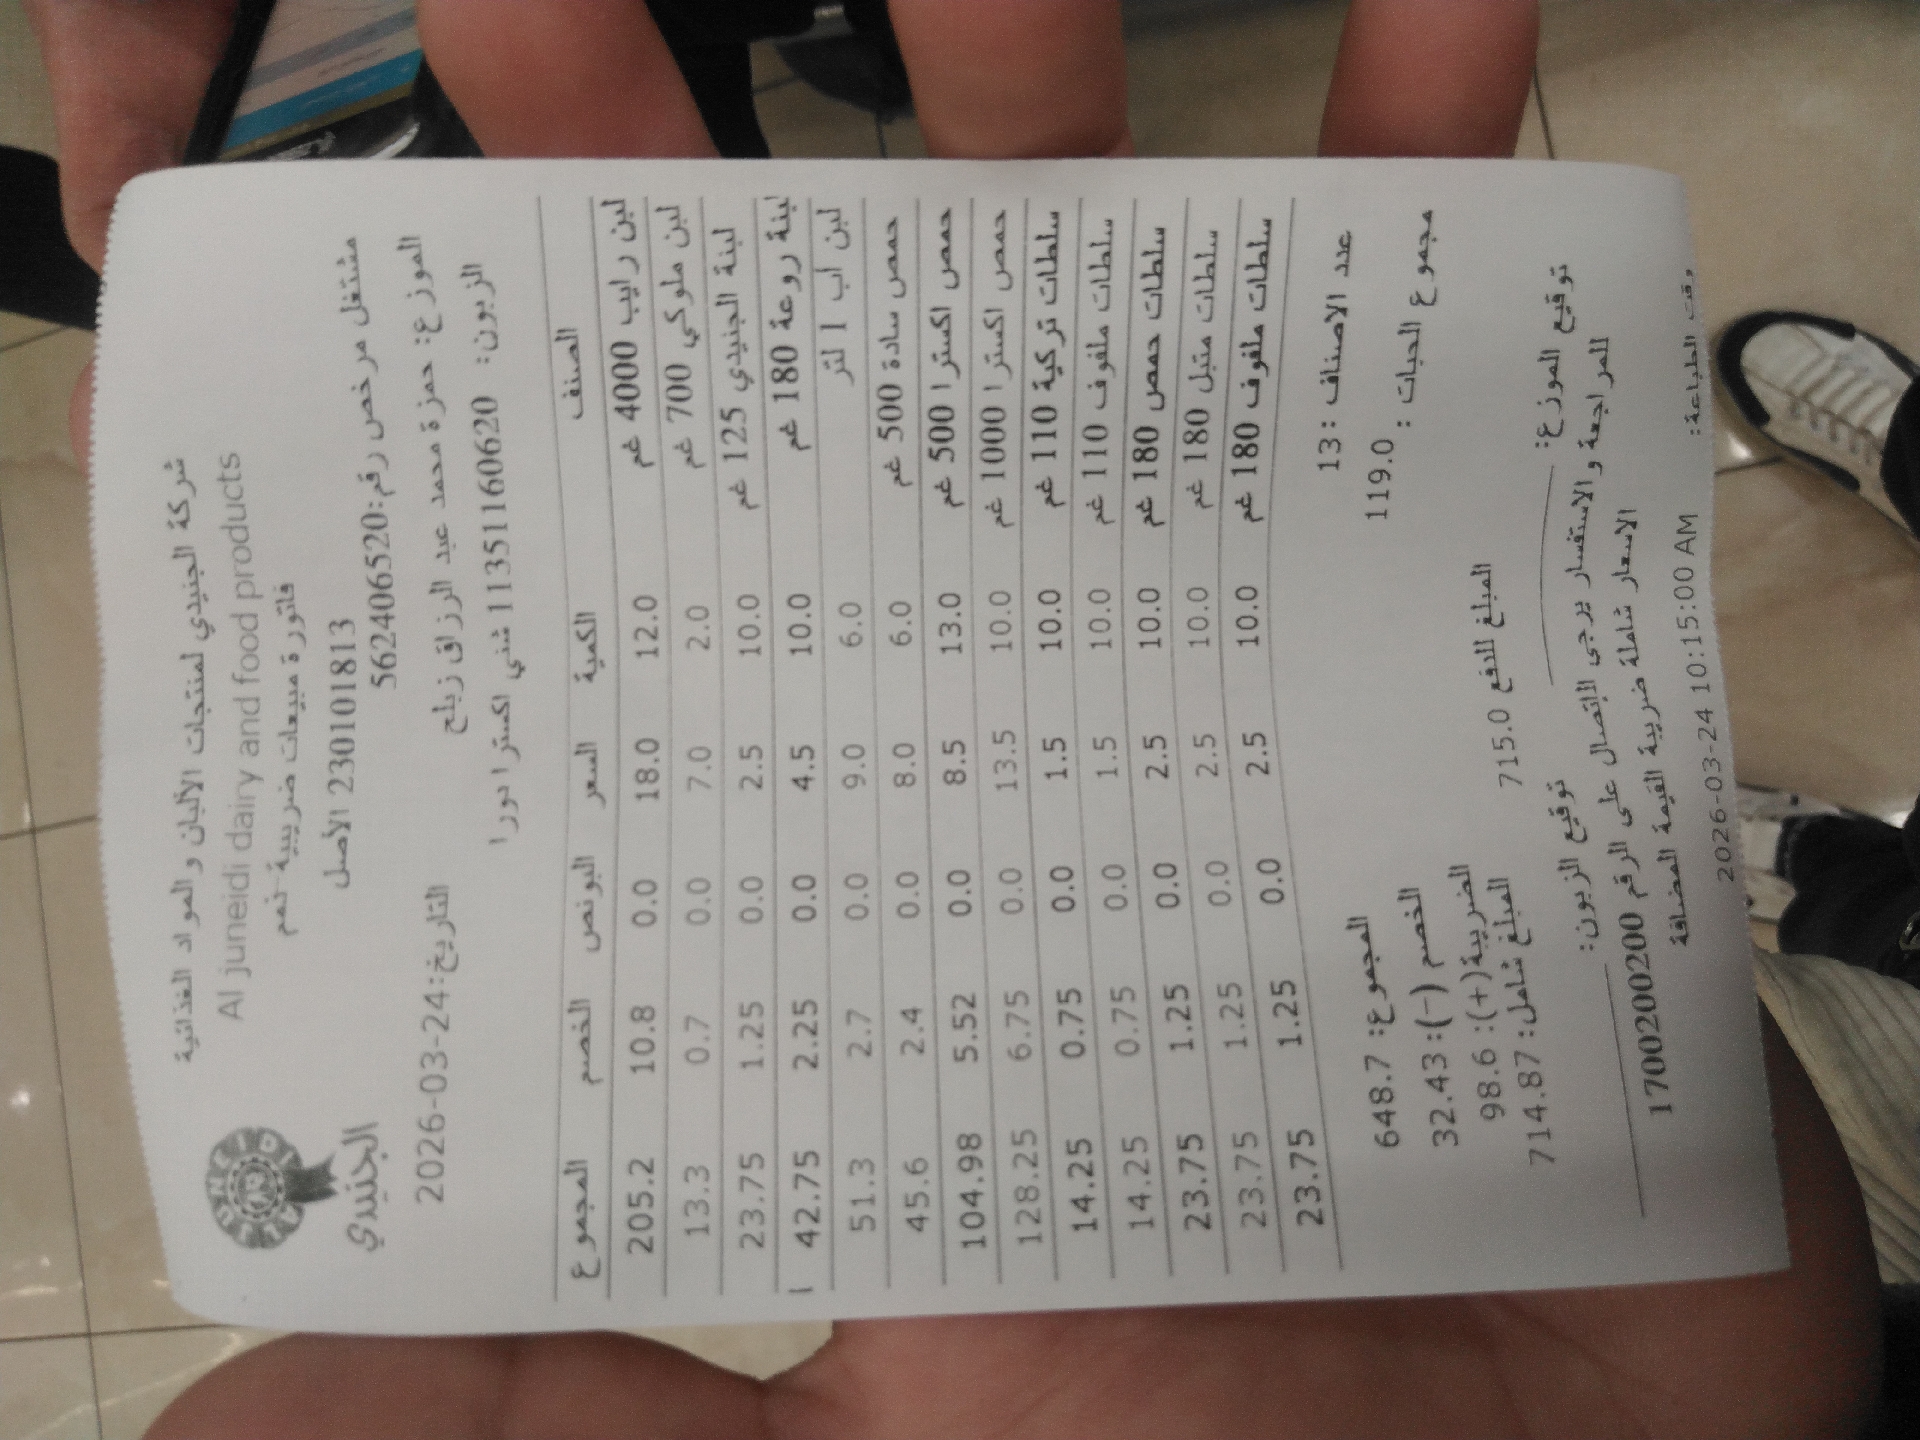 شركة الجنيدي لمنتجات الألبان و المواد الغذائية
Al juneidi dairy and food products
فاتورة مبيعات ضريبية نعم
الأصل 230101813
مشتغل مرخص رقم:562406520
الجنيدي
التاريخ:24-03-2026
الموزع: حمزة محمد عبد الرزاق زبلح
الزبون: 11351160620 شني اكسترا دورا
الصنف الكمية السعر البونص الخصم المجموع
لبن رايب 4000 غم 12.0 18.0 0.0 10.8 205.2
لبن ملوكي 700 غم 2.0 7.0 0.0 0.7 13.3
لبنة الجنيدي 125 غم 10.0 2.5 0.0 1.25 23.75
لبنة روعة 180 غم 10.0 4.5 0.0 2.25 42.75
لبن اب 1 لتر 6.0 9.0 0.0 2.7 51.3
حمص سادة 500 غم 6.0 8.0 0.0 2.4 45.6
حمص اكسترا 500 غم 13.0 8.5 0.0 5.52 104.98
حمص اكسترا 1000 غم 10.0 13.5 0.0 6.75 128.25
سلطات تركية 110 غم 10.0 1.5 0.0 0.75 14.25
سلطات ملفوف 110 غم 10.0 1.5 0.0 0.75 14.25
سلطات حمص 180 غم 10.0 2.5 0.0 1.25 23.75
سلطات متبل 180 غم 10.0 2.5 0.0 1.25 23.75
سلطات ملفوف 180 غم 10.0 2.5 0.0 1.25 23.75
عدد الاصناف : 13
المجموع: 648.7
مجموع الحبات : 119.0
الخصم (-): 32.43
الضريبة(+): 98.6
المبلغ شامل: 714.87
المبلغ للدفع 715.0
توقيع الموزع:
توقيع الزبون:
للمراجعة و الاستفسار يرجى الاتصال على الرقم 1700200200
الاسعار شاملة ضريبة القيمة المضافة
وقت الطباعة:
2026-03-24 10:15:00 AM